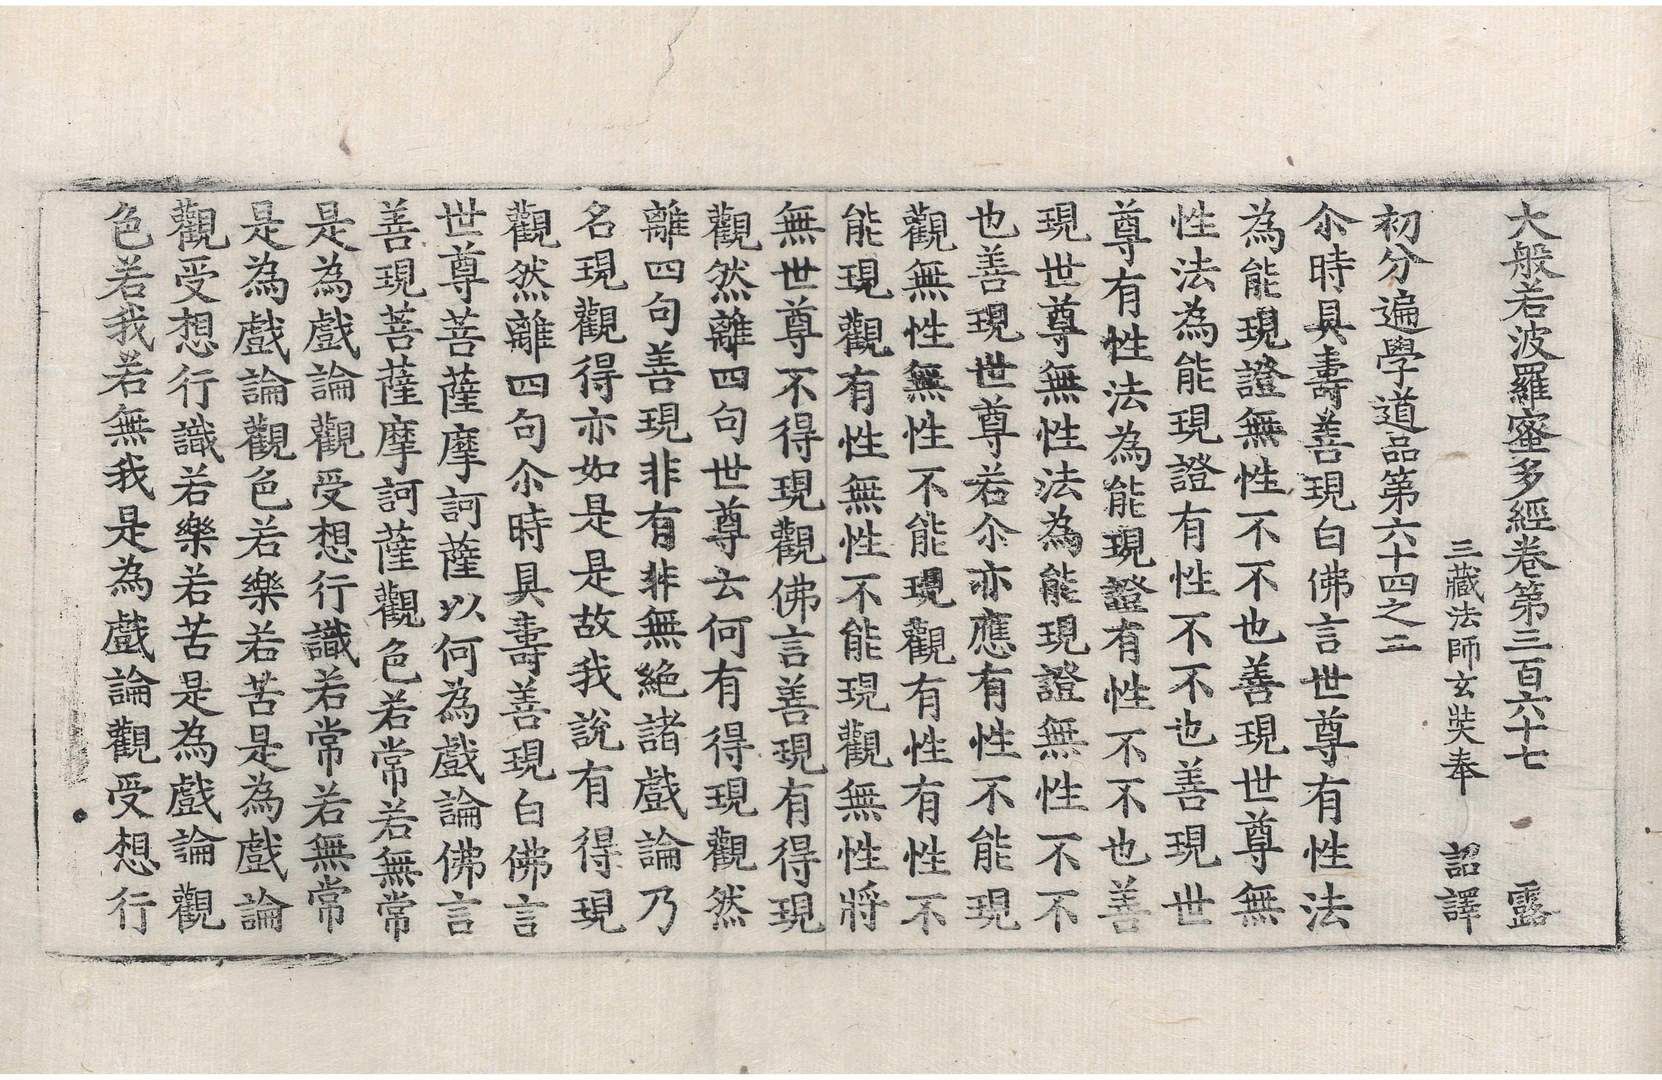 大般若波羅蜜多經卷第三百六十七 露
三藏法師玄奘奉 詔譯
初分遍學道品第六十四之二
尒時具壽善現白佛言世尊有性法
為能現證無性不不也善現世尊無
性法為能現證有性不不也善現世
尊有性法為能現證有性不不也善
現世尊無性法為能現證無性不不
也善現世尊若尒亦應有性不能現
觀無性無性不能現觀有性有性不
能現觀有性無性不能現觀無性將
無世尊不得現觀佛言善現有得現
觀然離四句世尊云何有得現觀然
離四句善現非有非無絶諸戲論乃
名現觀得亦如是是故我說有得現
觀然離四句尒時具壽善現白佛言
世尊菩薩摩訶薩以何為戲論佛言
善現菩薩摩訶薩觀色若常若無常
是為戲論觀受想行識若常若無常
是為戲論觀色若樂若苦是為戲論
觀受想行識若樂若苦是為戲論觀
色若我若無我是為戲論觀受想行